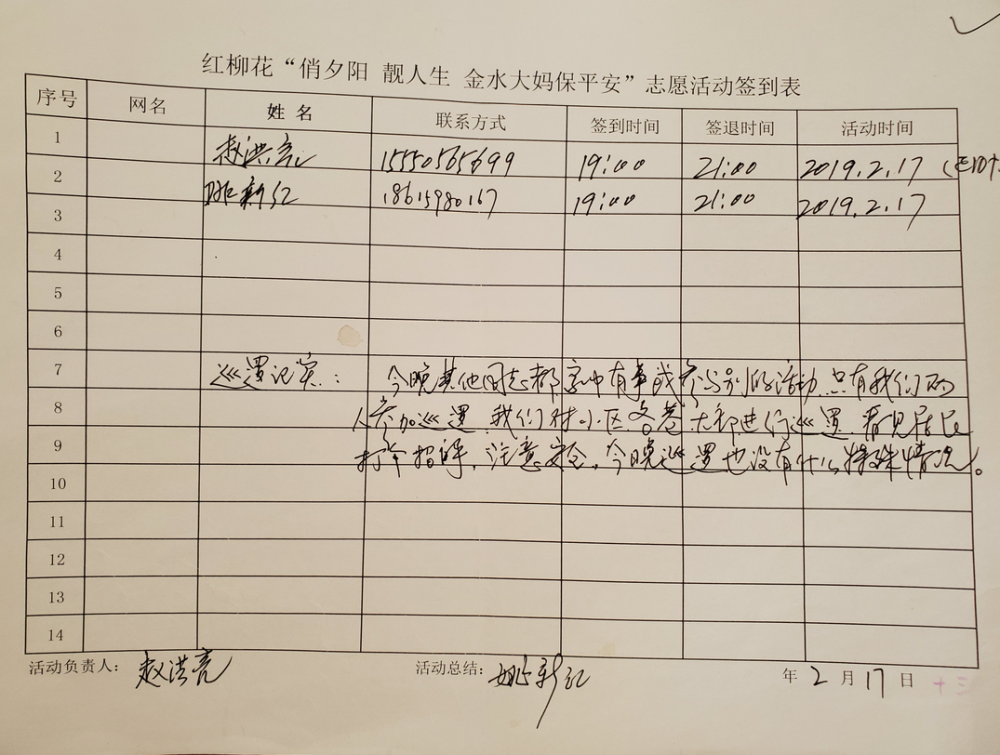 红柳花“俏夕阳 靓人生 金水大妈保平安”志愿活动签到表
序号 网名 姓名 联系方式 签到时间 签退时间 活动时间
1 赵洪亮 15550565699 19:00 21:00 2019.2.17
2 姚新红 18615980167 19:00 21:00 2019.2.17
3
4
5
6
7 巡逻记实: 今晚其他同志都家中有事或参与别的活动,只有我们两
8 人参加巡逻,我们对小区各巷大都进行巡逻,看见居民
9 打牵招呼,注意安全,今晚巡逻也没有什么特殊情况。
10
11
12
13
14
活动负责人: 赵洪亮 活动总结: 姚新红 年 2 月 17 日 十三